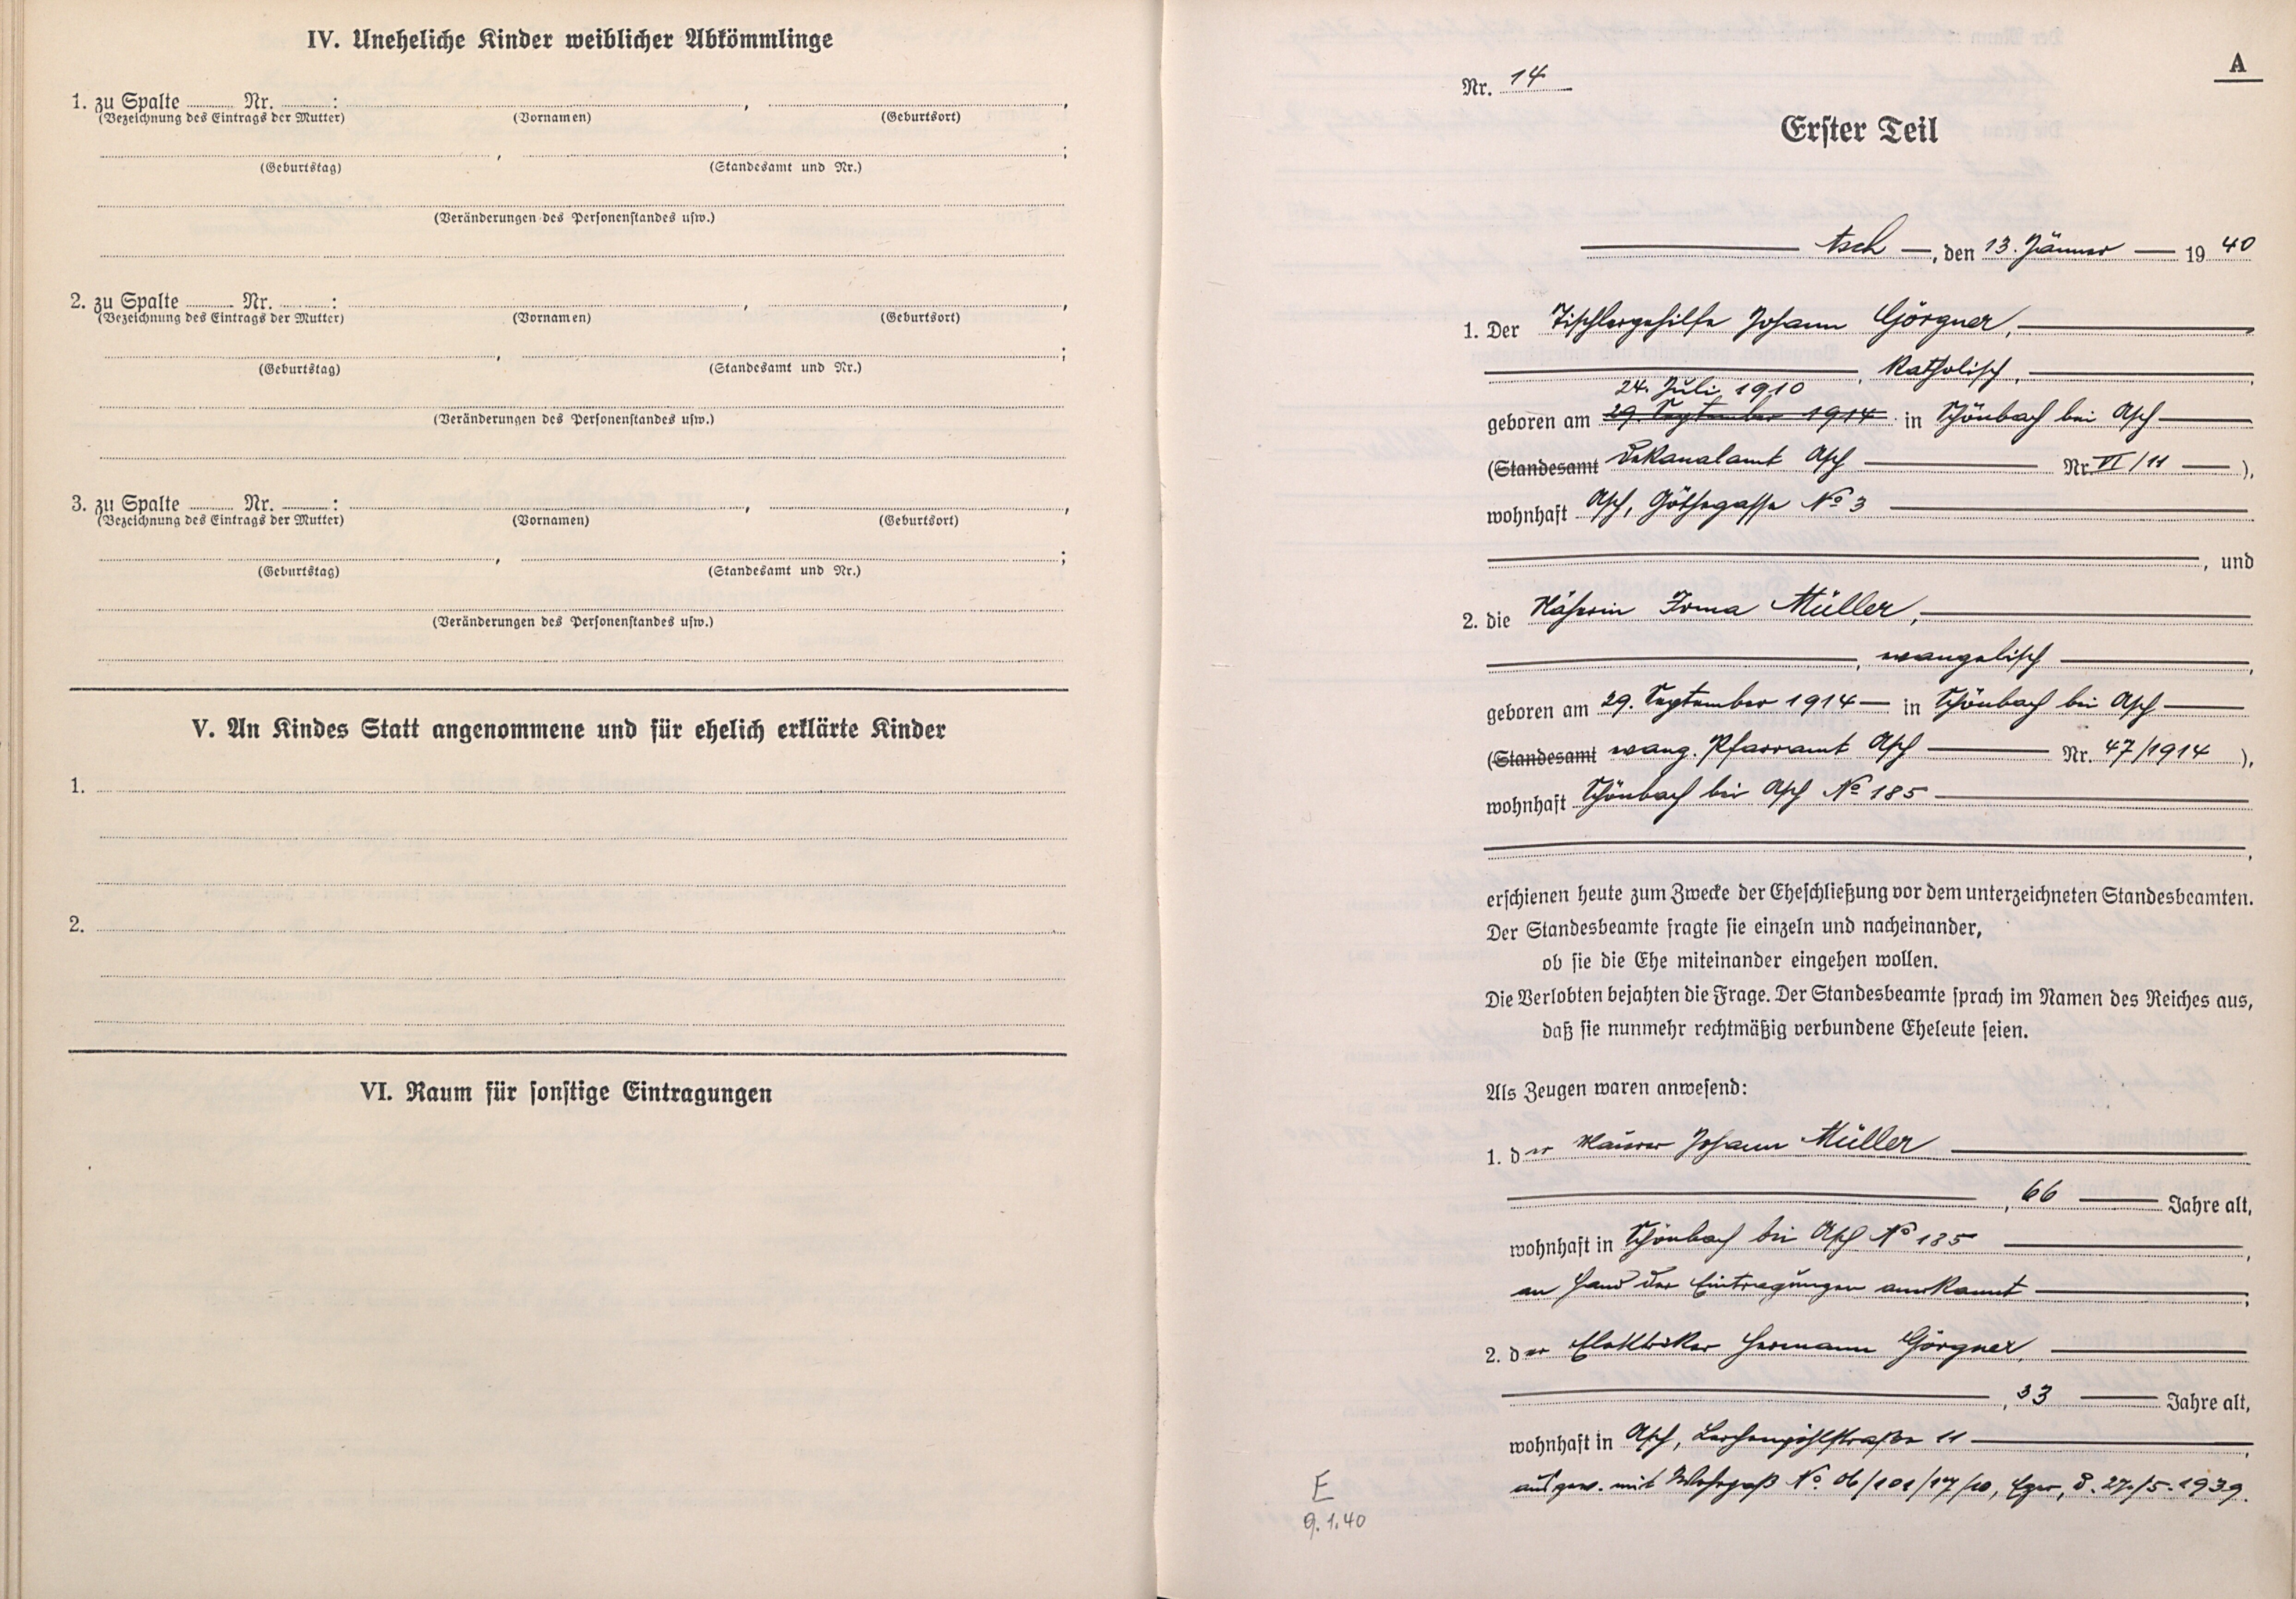 IV. Uneheliche Kinder weiblicher Abkömmlinge
1. zu Spalte Nr. : , ,
(Bezeichnung des Eintrags der Mutter) (Vornamen) (Geburtsort)
, ;
(Geburtstag) (Standesamt und Nr.)
(Veränderungen des Personenstandes usw.)
2. zu Spalte Nr. : , ,
(Bezeichnung des Eintrags der Mutter) (Vornamen) (Geburtsort)
, ;
(Geburtstag) (Standesamt und Nr.)
(Veränderungen des Personenstandes usw.)
3. zu Spalte Nr. : , ,
(Bezeichnung des Eintrags der Mutter) (Vornamen) (Geburtsort)
, ;
(Geburtstag) (Standesamt und Nr.)
(Veränderungen des Personenstandes usw.)
V. An Kindes Statt angenommene und für ehelich erklärte Kinder
1.
2.
VI. Raum für sonstige Eintragungen
A
Nr. 14
Erster Teil
Asch, den 13. Jänner 1940
1. Der Tischlergehilfe Johann Görgner,
, katholisch,
24. Juli 1910
geboren am 29. September 1914 in Schönbach bei Asch
(Standesamt Dekanalamt Asch Nr. VI/11 ),
wohnhaft Asch, Göthegasse No 3
, und
2. die Näherin Irma Müller,
, evangelisch ,
geboren am 29. September 1914 in Schönbach bei Asch
(Standesamt evang. Pfarramt Asch Nr. 47/1914 ),
wohnhaft Schönbach bei Asch No 185
,
erschienen heute zum Zwecke der Eheschließung vor dem unterzeichneten Standesbeamten.
Der Standesbeamte fragte sie einzeln und nacheinander,
ob sie die Ehe miteinander eingehen wollen.
Die Verlobten bejahten die Frage. Der Standesbeamte sprach im Namen des Reiches aus,
daß sie nunmehr rechtmäßig verbundene Eheleute seien.
Als Zeugen waren anwesend:
1. der Maurer Johann Müller
, 66 Jahre alt,
wohnhaft in Schönbach bei Asch No 185 ,
an Hand der Eintragungen anerkannt ;
2. der Elektriker Hermann Görgner,
, 33 Jahre alt,
wohnhaft in Asch, Lerchenpöhlstraße 11 ,
ausgew. mit Wehrpaß No 06/101/17/10, Eger, 27/5. 1939.
E
9.1.40